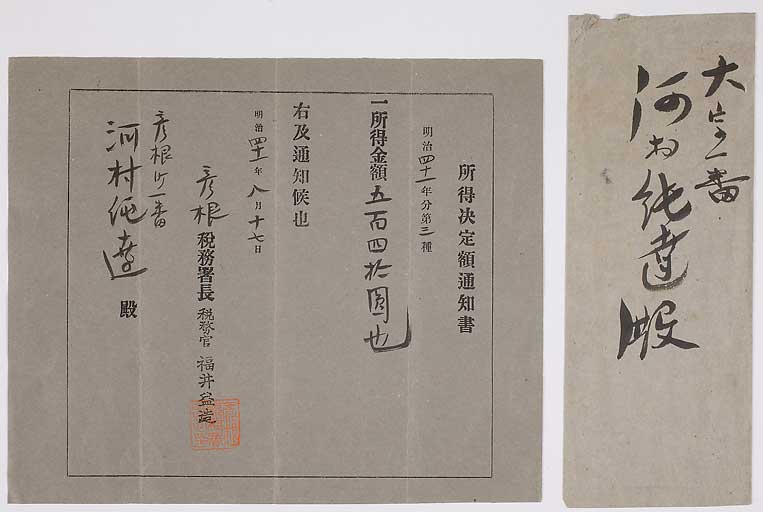 所得決定額通知書
明治四十一年分第三種
一所得金額五百四拾圓也
右及通知候也
明治四十一年八月十七日
彦根税務署長税務官福井益造
彦根町一番
河村純達殿
大字一番
河村純達殿